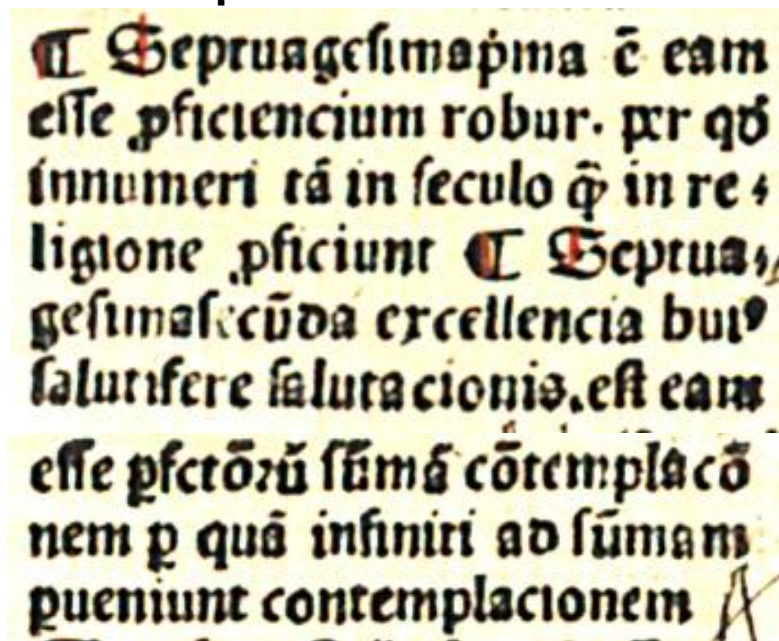 ¶ Septuagesimap̄ma ē eam
esse ꝓficiencium robur. per qð
innumeri tā in seculo q̄ꝫ in re⸗
ligione ꝓficiunt ¶ Septua⸗
gesimasecūda excellencia huiꝰ
salutifere salutacionis. est eam
esse ꝑfctōꝝū sūmā cōtemplacō
nem ꝑ quā infiniti ad sūmam
ꝑueniunt contemplacionem